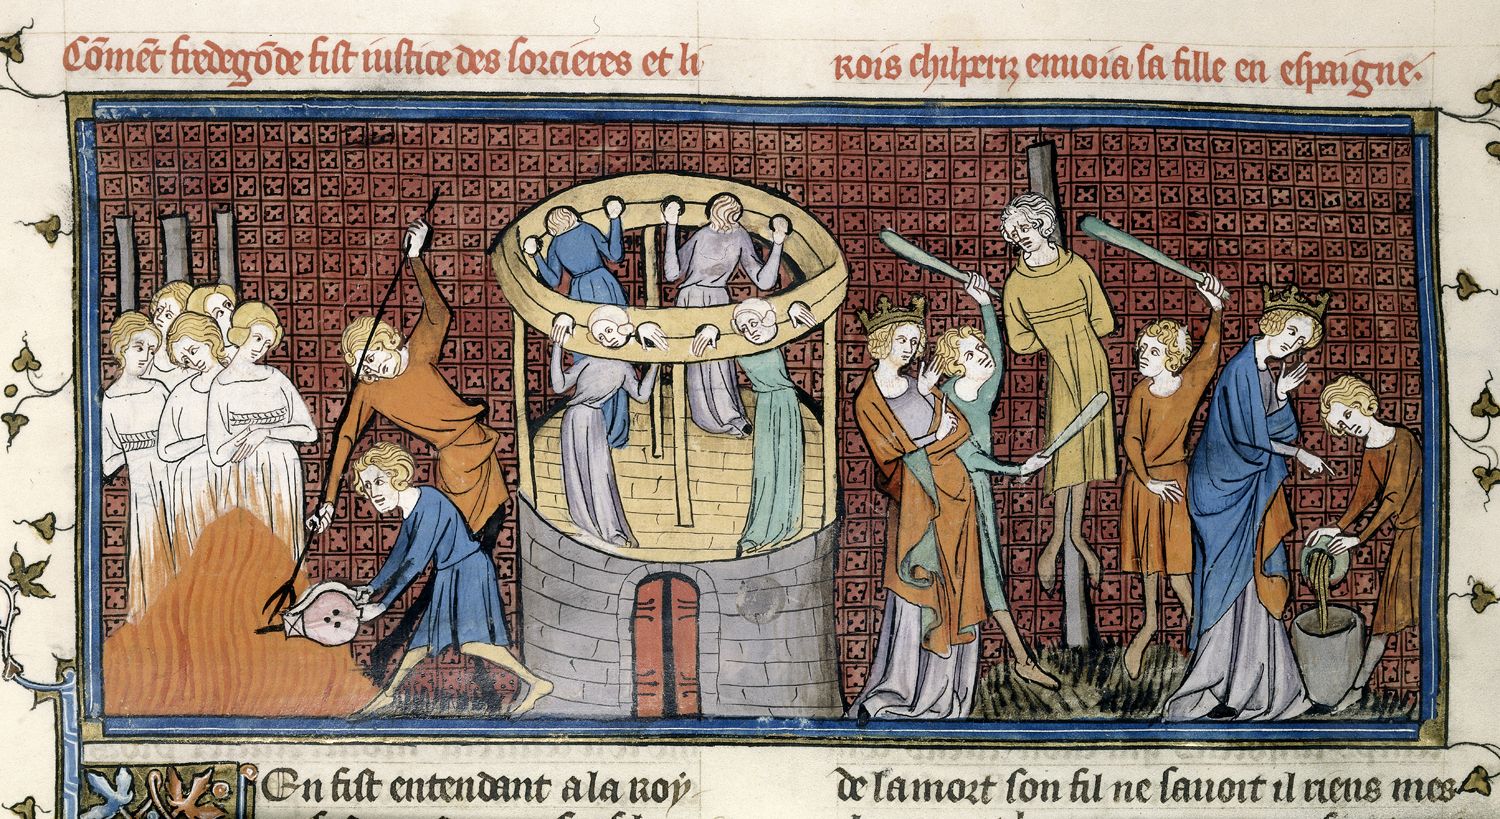 Cõmẽt fredegõde fist iustice des sorcieres et li
rois chilperiz enuoia sa fille en espaigne.
En fist entendant a la roy
de la mort son fil ne savoit il riens mes